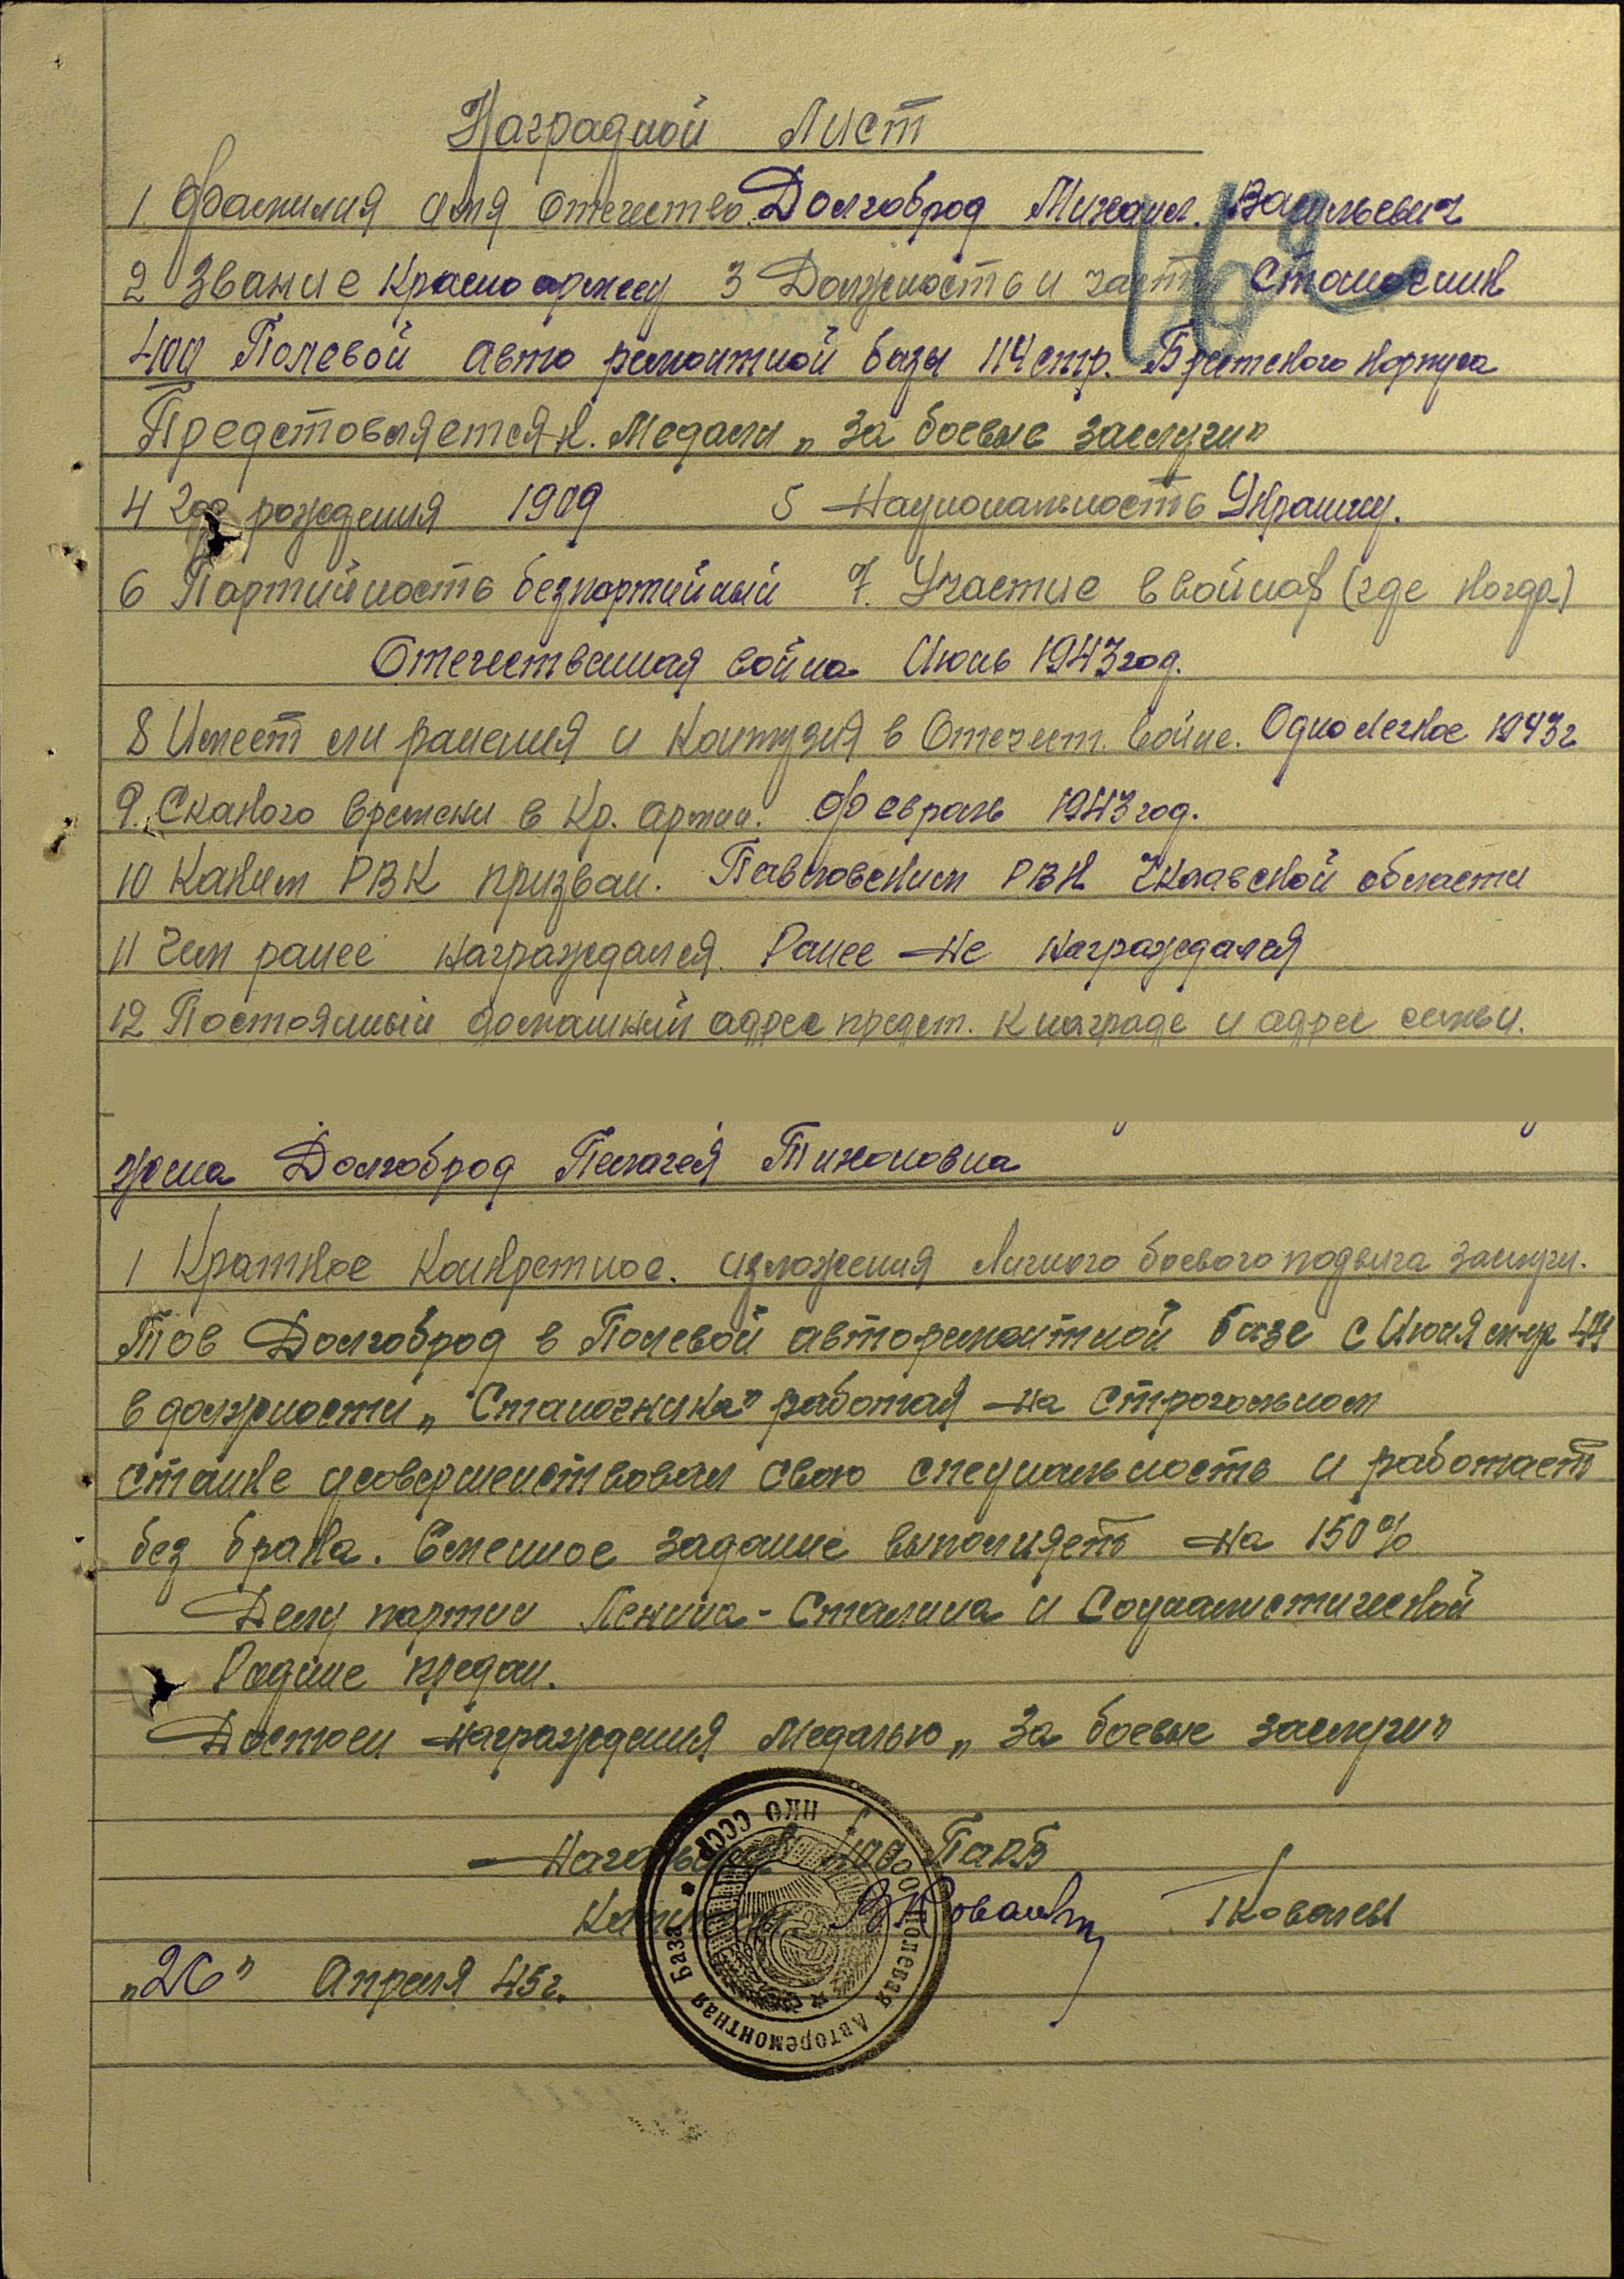 Наградной Лист
1. Фамилия имя отчество. Долгоброд Михаил. Васильевич
2 Звание Красноармеец 3 Должность и часть Станочник
400 Полевой авто ремонтной базы 114 стр. Брестского корпуса
Предстовляется к. Медали „За боевые заслуги"
4 год рождения 1909 5 Национальность Украинец.
6 Партийность безпартийный 7. Участие в войнах (где когда)
Отечественная война Июль 1943 год.
8 Имеет ли ранения и контузия в Отечест. войне. Одно легкое 1943 г
9. С какого времени в Кр. армии. Февраль 1943 год.
10 Каким РВК призван. Павловским РВК Чкаловской области
11 Чем ранее награждался. Ранее не награждался
12 Постоянный домашний адрес предст. к награде и адрес семьи.
жена Долгоброд Пелагея Тихоновна
1 Краткое Конкретное. изложения личного боевого подвига заслуги.
Тов Долгоброд в Полевой авторемонтной базе с Июля 44
в должности „Станочника" работая на строгальном
станке усовершенствовал свою специальность и работает
без брака. Сменное задание выполняеть на 150%
Делу партии Ленина - Сталина и Социалистической
Родине предан.
Достоен награждения медалью „За боевые заслуги"
Начальник 400 ПАРБ
Капитан Ковалев
„26" Апреля 45 г.
НКО СССР
400 Полевая Авторемонтная База
162